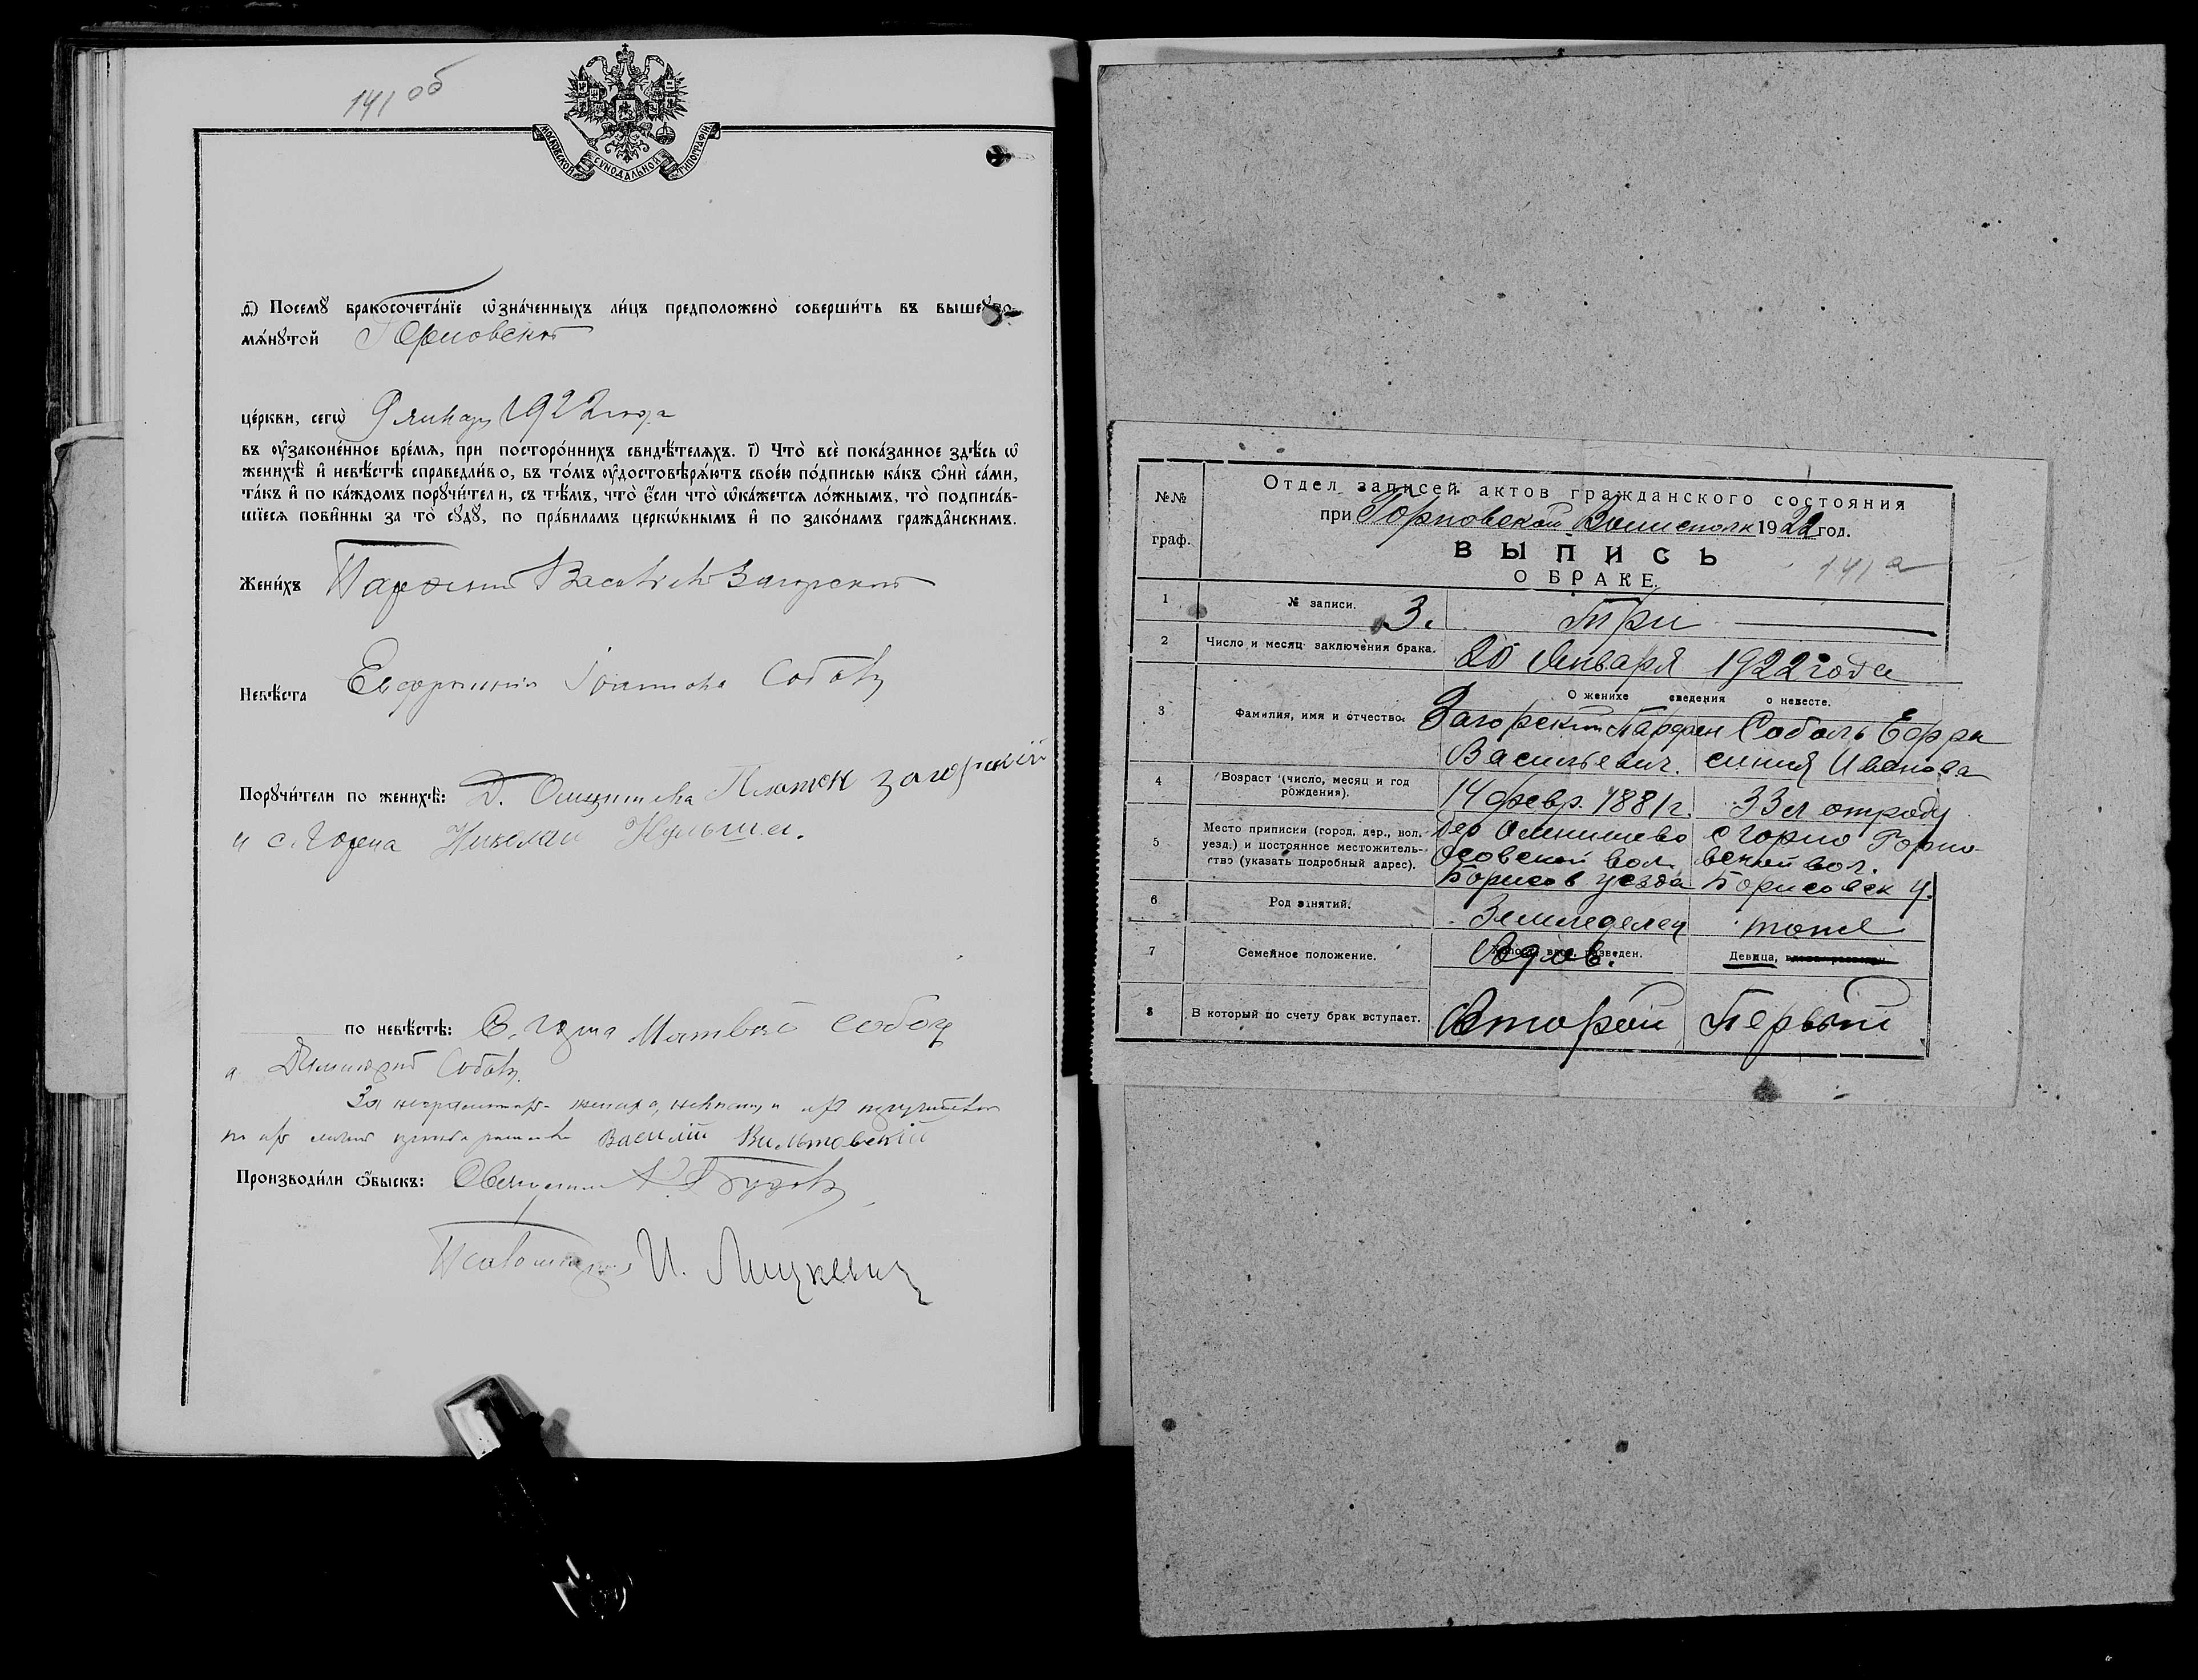 141 об
МОСКОВСКОЙ СУНОДАЛЬНОЙ ТИПОГРАФІИ
д҃) Посемꙋ̀ бракосочета́нїе ѡ҆зна́ченныхъ ли́цъ предположено̀ соверши́ть въ вышеꙋпо-
мѧ́нꙋтой Горновской
це́ркви, сегѡ̀ 9 января 1922 года
въ ᲂу҆законе́нное вре́мѧ, при посторо́ннихъ свидѣ́телѧхъ. і҃) Что̀ всѐ пока́занное здѣ́сь ѡ҆
женихѣ̀ и҆ невѣ́стѣ справедли́во, въ то́мъ ᲂу҆достовѣрѧ́ютъ свое́ю по́дписью ка́къ ѻ҆нѝ са́ми,
та́къ и҆ по ка́ждомъ порꙋчи́тели, съ тѣ́мъ, что̀ є҆́сли что̀ ѡ҆ка́жетсѧ ло́жнымъ, то̀ подписа́в-
шїесѧ пови́нны за то̀ сꙋдꙋ̀, по пра́виламъ церко́внымъ и҆ по зако́намъ гражда́нскимъ.
Жени́хъ Парфений Васильев Загорский
Невѣ́ста Евфросиния Иоаннова Соболь
Порꙋчи́тели по женихѣ̀: Д. Платон Загорский
и с. Горна Николай
по невѣ́стѣ: С. Горна Матвей Соболь
и Димитрий Соболь
За неграмотн. жениха, невесту и их поручителей
по их личной просьбе Василий Вильтовский
Производи́ли ѻ҆́быскъ: Священник
Псаломщик И. Лицкевич
№№ граф.
Отдел записей актов гражданского состояния
при Горновском Волисполк 1922 год.
ВЫПИСЬ
О БРАКЕ.
141 а
1 № записи. 3. Три
2 Число и месяц заключения брака. 20 Января 1922 года
О женихе сведения о невесте.
3 Фамилия, имя и отчество. Загорский Парфен Соболь Ефро
Васильевич. синия Иванова
4 Возраст (число, месяц и год рождения). 14 февр. 1881 г. 33 л от роду
5 Место приписки (город, дер., вол. Дер Омнишево с Горно Горно-
уезд.) и постоянное местожитель- Осовской вол. вской вол.
ство (указать подробный адрес). Борисов уезда Борисовск у.
6 Род занятий. Земледелец тоже
7 Семейное положение. Вдов. Девица,
8 В который по счету брак вступает. Второй Первый